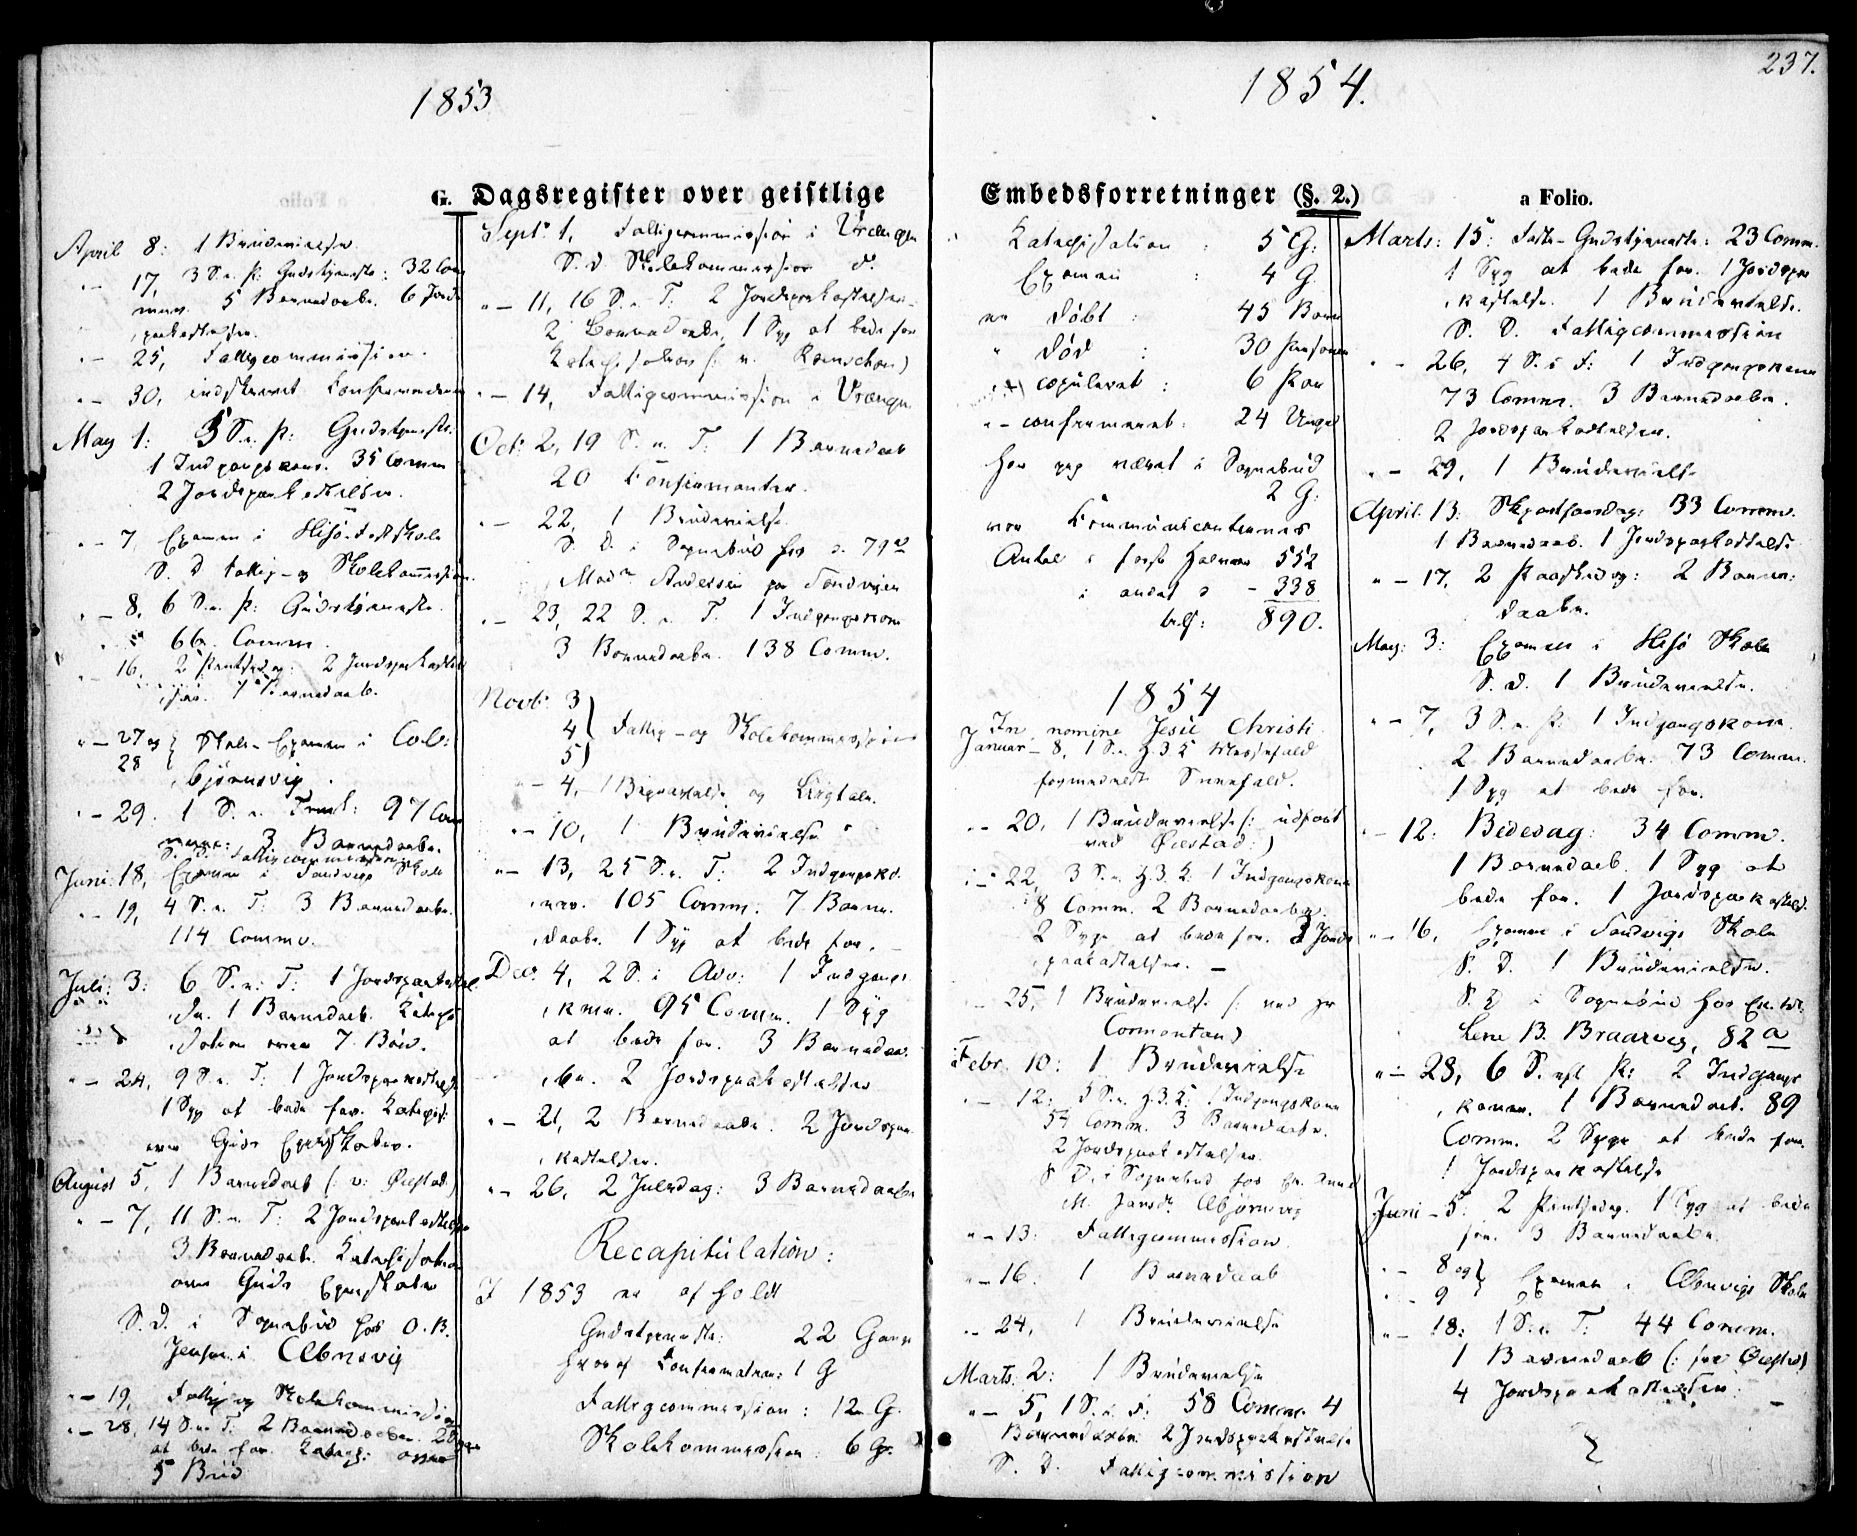 237.
1853
1854.
G. Dagsregister over geistlige
Embedsforretninger (§. 2.)
a Folio.
April 8: 1 Brudevielse
„ – 17, 3 S. e. P: Gudstjeneste: 32 Com
muni. 5 Barnedaabe. 6 Jords
paakastelser.
„ – 25, Fattigcommission.
„ – 30, indskrevet Confirmander
May 1: 5 S. e. P: Gudstjeneste.
1 Indgangskone. 35 Comm
2 Jordspaakastelser.
„ – 7, Examen i Hisö Fastskole
S. D Fattig- og Skolekommission.
„ – 8, 6 S. e. P: Gudstjeneste.
66 Comm.
16, 2 Pintsedag. 2 Jordspaakastel
ser. 1 Barnedaab.
„ – 27 og 28 Skole-Examen i Colb:
bjørnsvig.
„ – 29. 1 S. e. Trinit: 97 Com
muni: 3 Barnedaabe.
S. D. Fattigcommission
Juni: 18, Examen i Sandvigs Skole
„ – 19, 4 S. e. T: 3 Barnedaabe.
114 Comm.
Juli: 3: 6 S. e: T: 1 Jordspaakastel
se. 1 Barnedaab. Katechi
sation over 7 Bud.
„ – 24, 9 S. e. T: 1 Jordspaakastelse
1 Syg at bede for. Katechis:
over Guds Egenskaber.
August 5, 1 Barnedaab (: v: Øiestad:)
„ – 7, 11 S. e. T: 2 Jordspaakastelser
3 Barnedaabe. Katechisation
over Guds Egenskaber
S. D. i Sognebud hos O. B.
Jensen i
„ – 19, Fattig og Skolekommission
„ – 28, 14 S. e. T. 2 Barnedaabe. 2 Syge
at bede for. Katech: over
5 Bud
Sept: 1, Fattigcommission i Vrængen
S. d. Skolekommission d:
„ – 11, 16 S. e. T: 2 Jordspaakastelser.
2 Barnedaabe, 1 Syg at bede for
Katechisation
„ – 14, Fattigcommission i Vrængn
Oct: 2, 19 S. e. T: 1 Barnedaab
20 Confirmanter.
„ – 22, 1 Brudevielse
S. D. i Sognebud hos
Mad: Andersen paa Sandvigen
„ – 23, 22 S. e. T. 1 Indgangskone
3 Barnedaabe. 138 Comm.
Novb: 3
4 Fattig- og Skolekommission
5
„ – 4, 1 Begravelse og Liigtale.
„ – 10, 1 Brudevielse
„ – 13, 25 S. e. T: 2 Indgangsko
ner. 105 Comm: 7 Barne
daabe. 1 Syg at bede for. –
Dec: 4, 2 S. i Adv: 1 Indgangs
kone. 95 Comm. 1 Syg
at bede for. 3 Barnedaa
be. 2 Jordspaakastelser
„ – 21, 2 Barnedaabe. 2 Jordspaa
kastelser.
„ – 26, 2 Juledag: 3 Barnedaabe
Recapitulation:
I 1853 er afholdt
Gudstjeneste: 22 Gange
hvoraf Confirmation: 1 G
Fattigcommission: 12 G.
Skolekommission: 6 G.
Katechisation: 5 G:
Examen: 4 G
er døbt: 45 Børn
„ død: 30 Personer
copuleret: 6 Par
„ – confirmeret: 24 Unge
har jeg været i Sognebud
2 G:
var Communicanternes
Antal i første Halvaar 552
i andet d – 338
890.
1854
In nomine Jesu Christi
Januar – 8, 1 S. e. H. 3 K Messefald
formedelst Sneefald.
„ – 20, 1 Brudevielse (: udført
ved Øiestad:)
„ – 22, 3 S. e. H. 3. K: 1 Indgangskone
8 Comm. 2 Barnedaabe.
2 Syge at bede for. 3 Jords
paakastelser. –
25, 1 Brudevielse
Febr. 10: 1 Brudevielse
„ – 12: 5 S. e. H. 3. K: 1 Indgangskone
54 Comm. 3 Barnedaabe.
2 Jordspaakastelser.
S. D. i Sognebud hos
„ – 13: Fattigcommission.
„ – 16. 1 Barnedaab
„ – 24, 1 Brudevielse
Marts: 2: 1 Brudevielse
„ – 5, 1 S. i F: 58 Comm. 4
Barnedaabe 2 Jordspaakastelse
S. D. Fattigcommission
Marts: 15: Faste-Gudstjeneste: 23 Comm.
1 Syg at bede for. 1 Jordspaa
kastelse. 1 Brudevielse.
S. D. Fattigcommission
„ – 26, 4 S. i F: 1 Indgangskone
73 Comm. 3 Barnedaabe.
2 Jordspaakastelser.
„ – 29, 1 Brudevielse
April: 13: Skjærthorsdag: 33 Comm.
1 Barnedaab. 1 Jordspaakastelse
„ – 17, 2 Paaskedag: 2 Barne:
daabe.
May: 3: Examen i Hisö Skole
S. d. 1 Brudevielse.
„ – 7, 3 S. e. P: 1 Indgangskone
2 Barnedaabe: 73 Comm.
1 Syg at bede for.
– 12: Bededag: 34 Comm.
1 Barnedaab. 1 Syg at
bede for. 1 Jordspaakastelse.
„ – 16, Examen i Sandvigs Skole
S. D. 1 Brudevielse.
S. D i Sognebud hos
Lene B. Braarvig, 82 a
„ – 28, 6 S. eft P: 2 Indgangs
koner. 1 Barnedaab. 89
Comm. 2 Syge at bede for.
1 Jordspaakastelse
Juni – 5: 2 Pintsedag. 1 Syg at bede
for. 3 Barnedaabe.
„ – 8 og 9 Examen i Skole
„ – 18: 1 S. e. T: 44 Comm.
1 Barnedaab
4 Jordspaakastelser. –